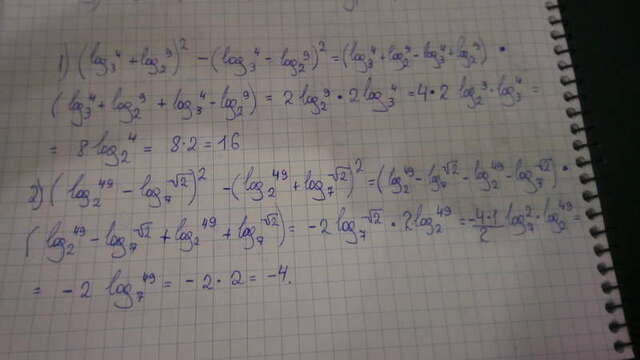 1) (log₃⁴ + log₂⁹)² − (log₃⁴ − log₂⁹)² = (log₃⁴ + log₂⁹ − log₃⁴ + log₂⁹) ·
(log₃⁴ + log₂⁹ + log₃⁴ − log₂⁹) = 2 log₂⁹ · 2 log₃⁴ = 4 · 2 log₂³ · log₃⁴ =
= 8 log₂⁴ = 8·2 = 16
2) (log₂⁴⁹ − log₇^√2)² − (log₂⁴⁹ + log₇^√2)² = (log₂⁴⁹ − log₇^√2 − log₂⁴⁹ − log₇^√2) ·
(log₂⁴⁹ − log₇^√2 + log₂⁴⁹ + log₇^√2) = −2 log₇^√2 · 2 log₂⁴⁹ = −4·1/2 log₇² · log₂⁴⁹ =
= −2 log₇⁴⁹ = −2·2 = −4.